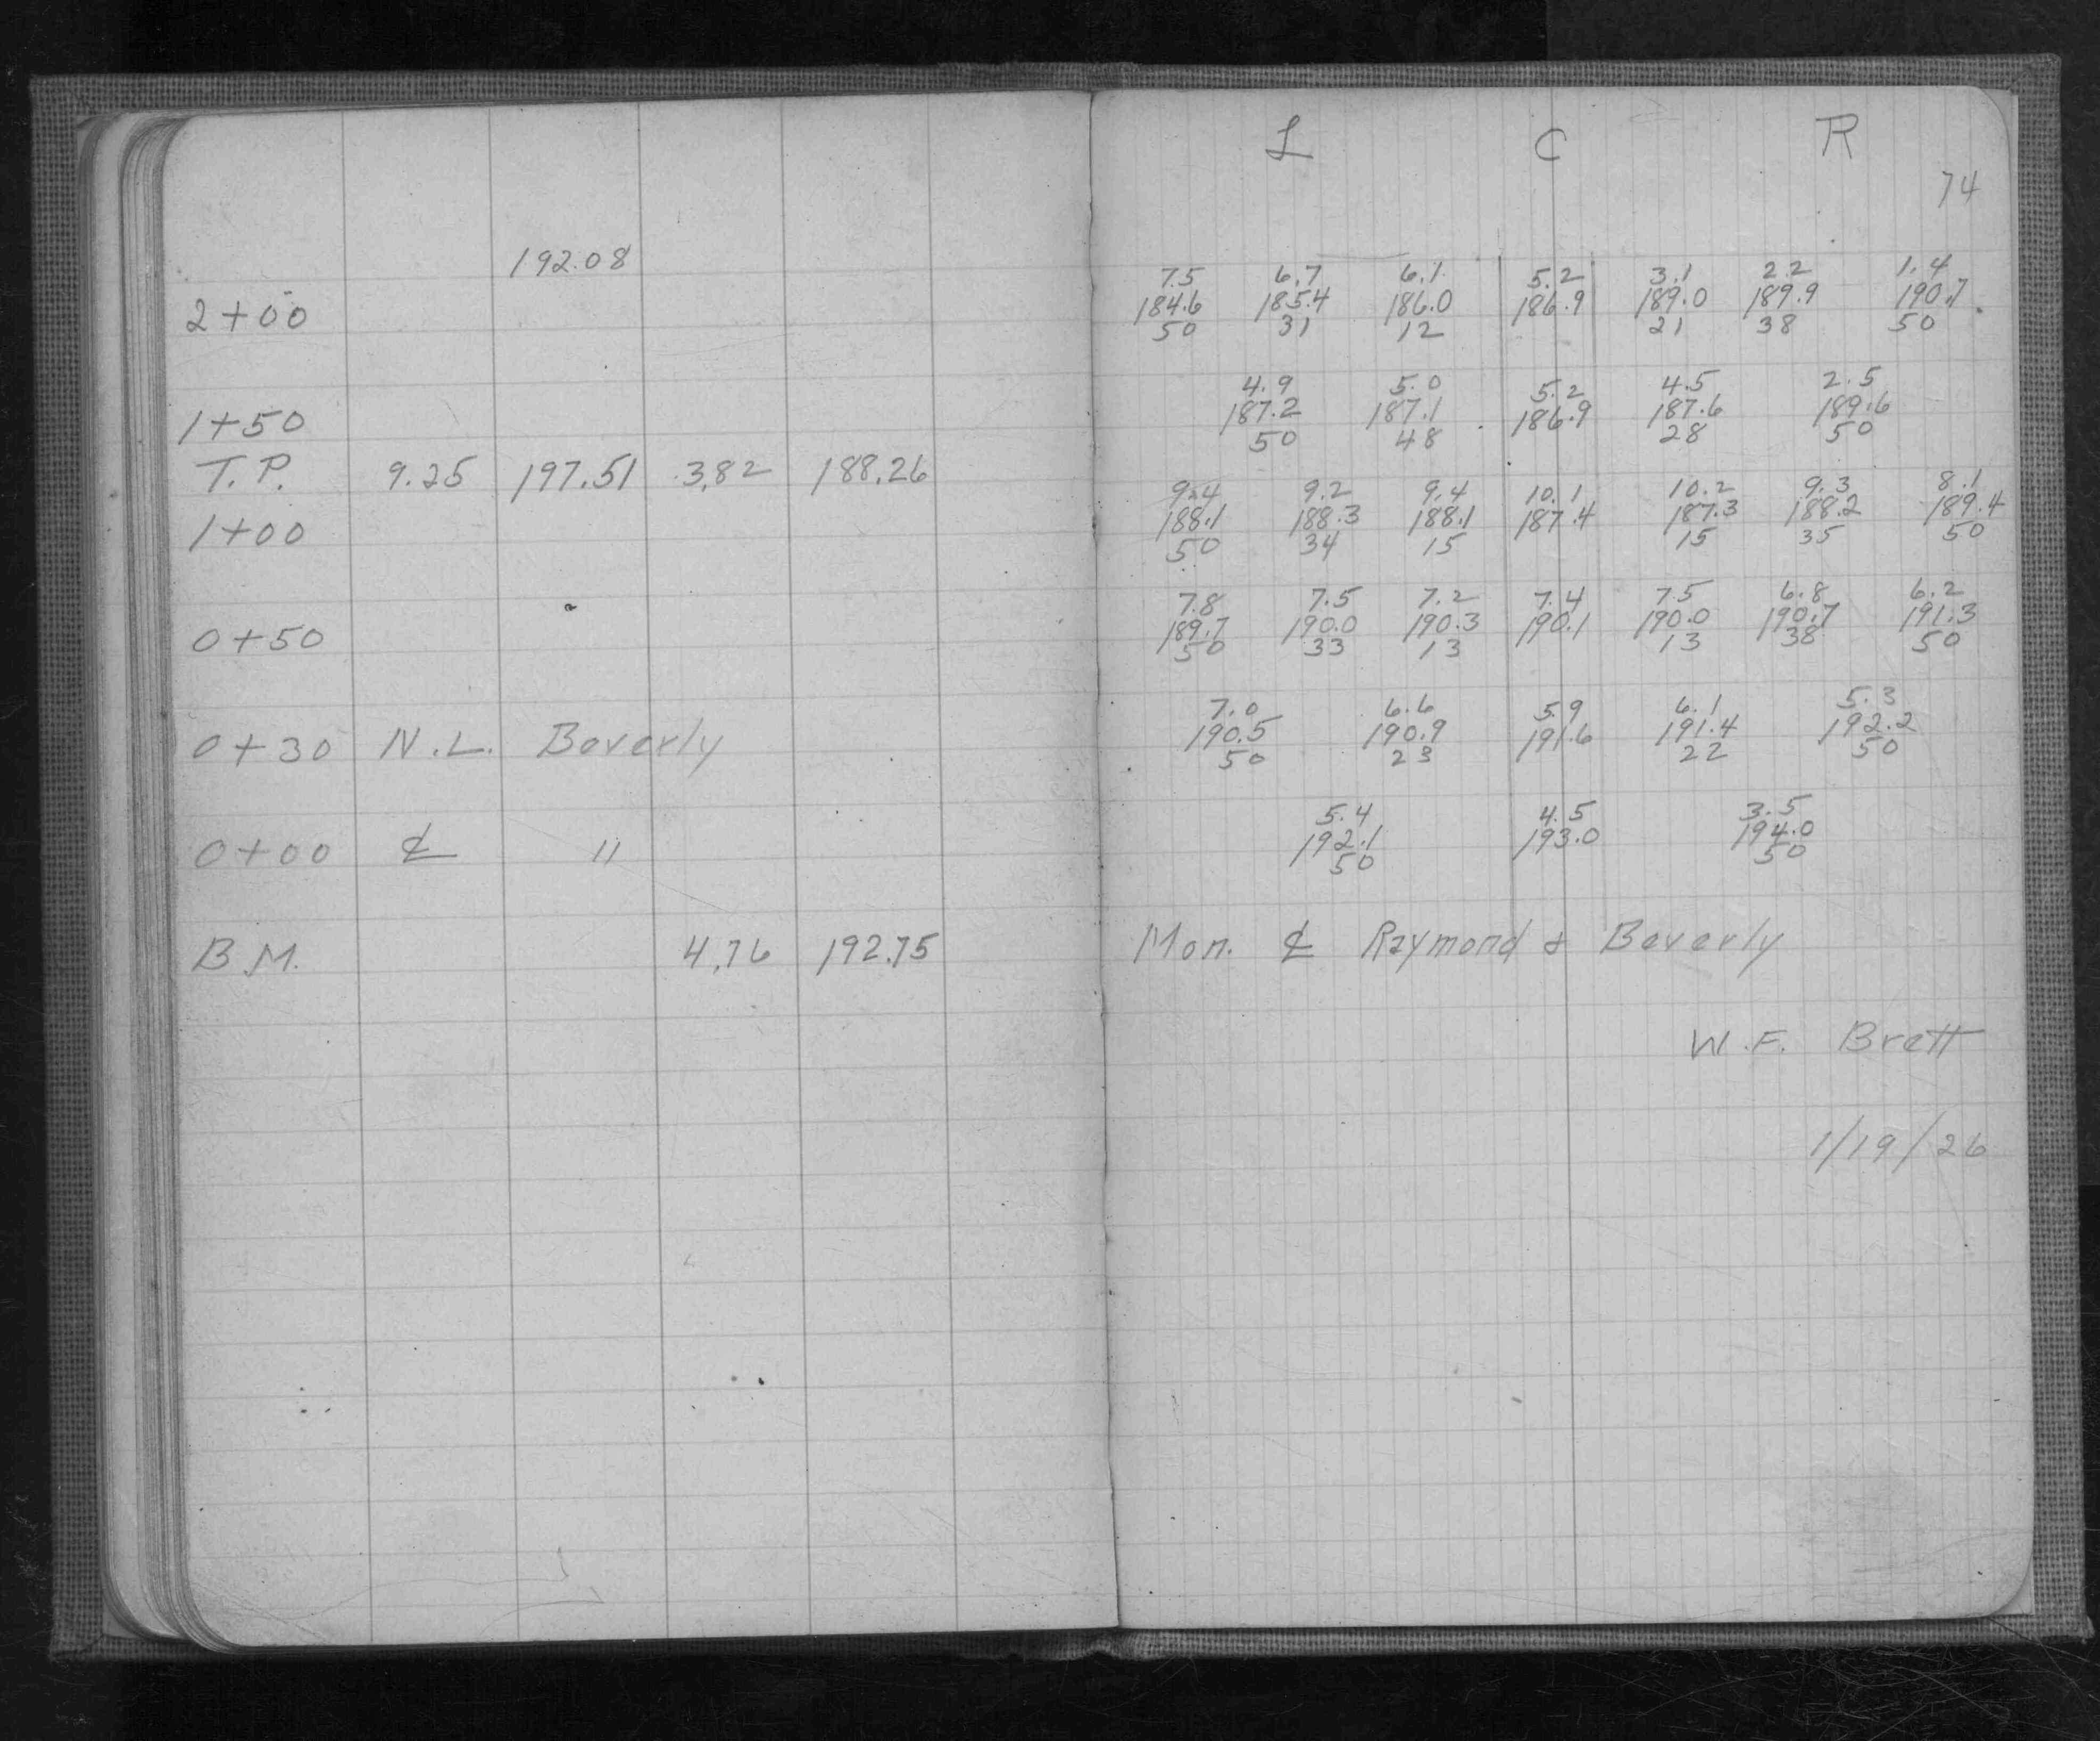 L C R
74
192.08
7.5 6.7 6.1 5.2 3.1 2.2 1.4
2+00 184.6 185.4 186.0 186.9 189.0 189.9 190.7
50 31 12 21 38 50
4.9 5.0 5.2 4.5 2.5
1+50 187.2 187.1 186.9 187.6 189.6
50 48 28 50
T.P. 9.25 197.51 3.82 188.26
9.4 9.2 9.4 10.1 10.2 9.3 8.1
1+00 188.1 188.3 188.1 187.4 187.3 188.2 189.4
50 34 15 15 35 50
7.8 7.5 7.2 7.4 7.5 6.8 6.2
0+50 189.7 190.0 190.3 190.1 190.0 190.7 191.3
50 33 13 13 38 50
7.0 6.6 5.9 6.1 5.3
0+30 N.L. Beverly 190.5 190.9 191.6 191.4 192.2
50 23 22 50
5.4 4.5 3.5
0+00 ℄ " 192.1 193.0 194.0
50 50
B.M. 4.76 192.75 Mon. ℄ Raymond & Beverly
W.F. Brett
1/19/26